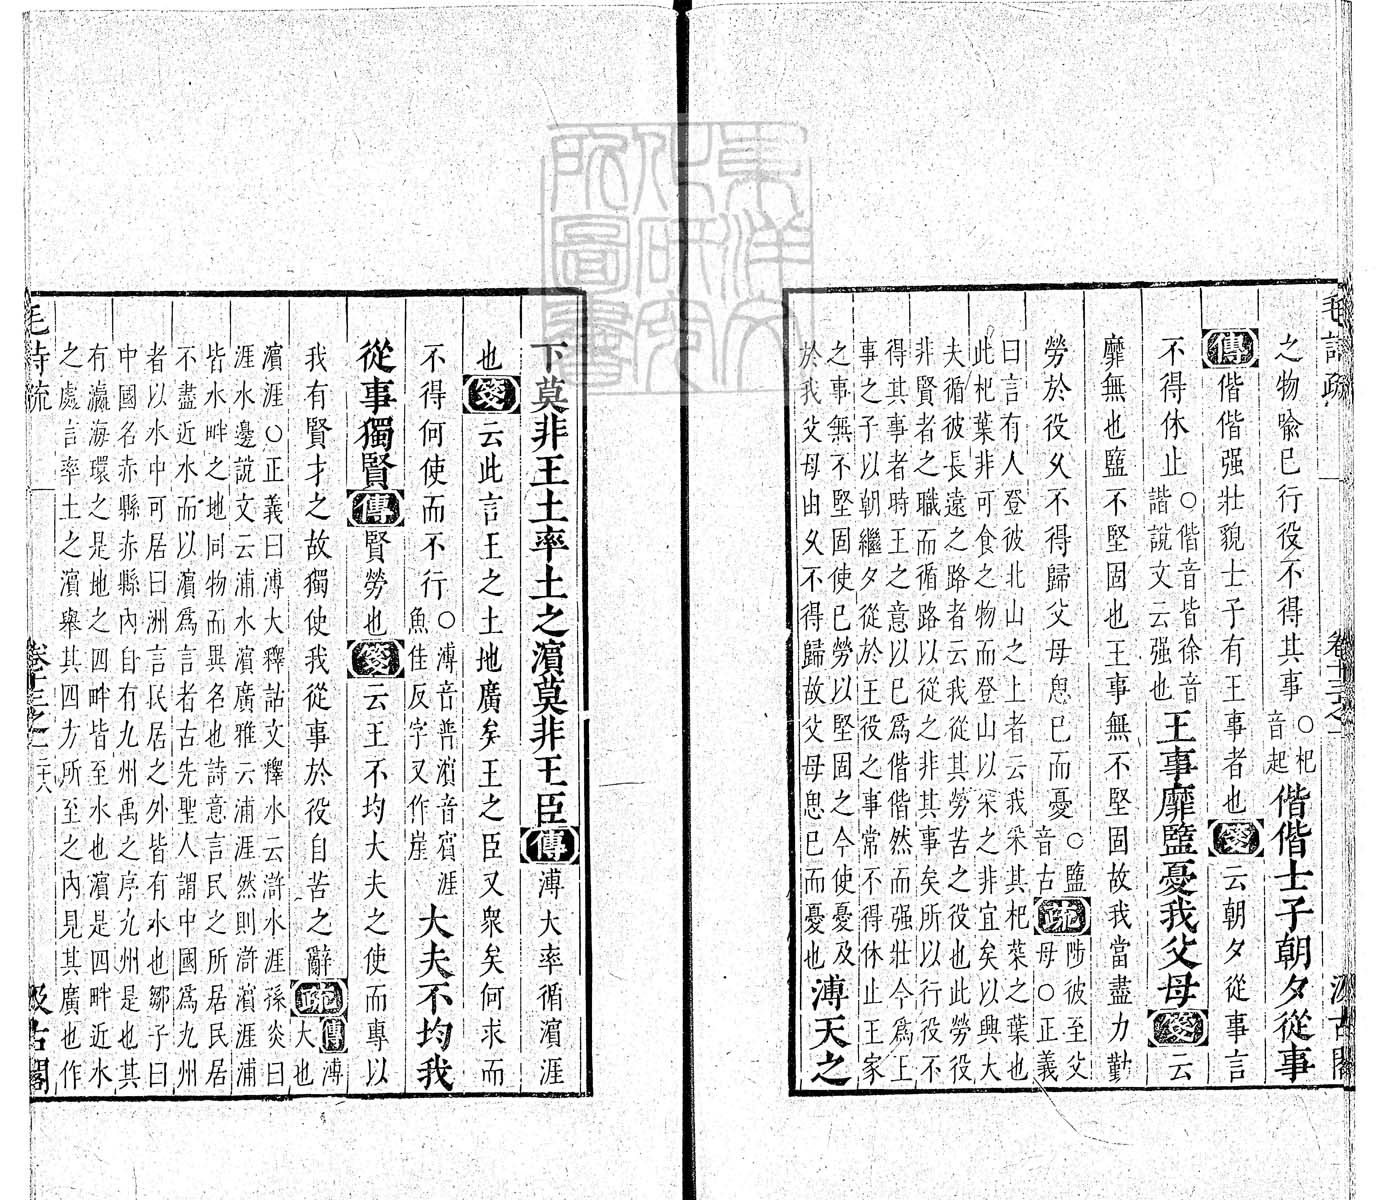 毛詩疏
卷十三之一
汲古閣
之物喻已行役不得其事○杞音起偕偕士子朝夕從事
傳偕偕强壯貌士子有王事者也箋云朝夕從事言
不得休止○偕音皆徐音諧說文云强也王事靡盬憂我父母箋云
靡無也盬不堅固也王事無不堅固故我當盡力勤
勞於役久不得歸父母思已而憂○盬音古疏陟彼至父母○正義
曰言有人登彼北山之上者云我采其杞菜之葉也
此杞葉非可食之物而登山以采之非宜矣以興大
夫循彼長遠之路者云我從其勞苦之役也此勞役
非賢者之職而循路以從之非其事矣所以行役不
得其事者時王之意以已爲偕偕然而强壯今爲王
事之子以朝繼夕從於王役之事常不得休止王家
之事無不堅固使已勞以堅固之今使憂及
於我父母由久不得歸故父母思已而憂也溥天之
下莫非王土率土之濱莫非王臣傳溥大率循濱涯
也箋云此言王之土地廣矣王之臣又衆矣何求而
不得何使而不行○溥音普濱音賔涯魚佳反字又作崖大夫不均我
從事獨賢傳賢勞也箋云王不均大夫之使而專以
我有賢才之故獨使我從事於役自苦之辭疏傳溥大也
濱涯○正義曰溥大釋詁文釋水云滸水涯孫炎曰
涯水邊說文云浦水濱廣雅云浦涯然則滸濱涯浦
皆水畔之地同物而異名也詩意言民之所居民居
不盡近水而以濱爲言者古先聖人謂中國爲九州
者以水中可居曰洲言民居之外皆有水也鄒子曰
中國名赤縣赤縣內自有九州禹之序九州是也其
有瀛海環之是地之四畔皆至水也濱是四畔近水
之處言率土之濱舉其四方所至之內見其廣也作
毛詩疏
卷十三之一
二十八
汲古閣
東洋文化研究所圖書